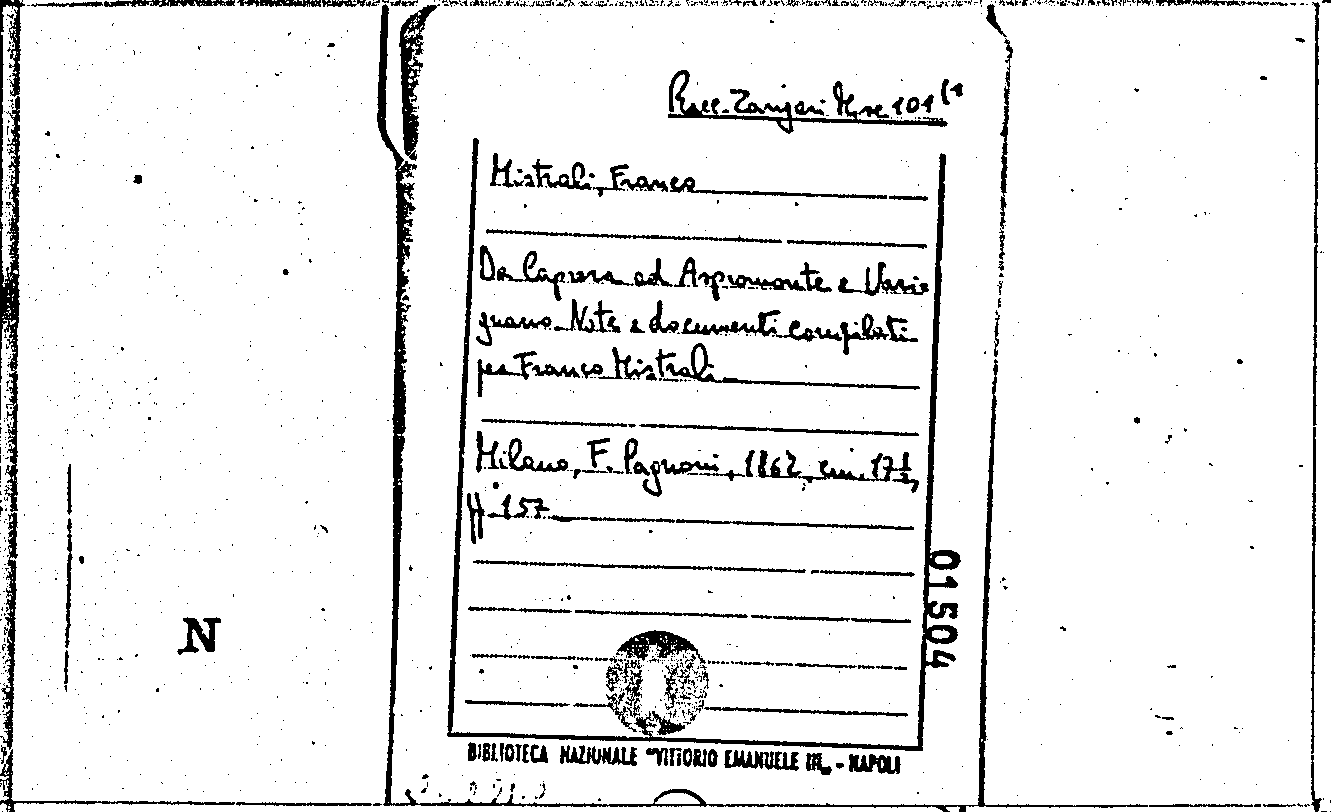 Mistrali, Franco
Da Caprera ad Aspromonte e Vari=
gnano. Note e documenti compilati
per Franco Mistrali
Milano, F. Pagnoni, 1862, cm. 17 1/2,
pp. 157
01504
N
BIBLIOTECA NAZIONALE "VITTORIO EMANUELE III" - NAPOLI